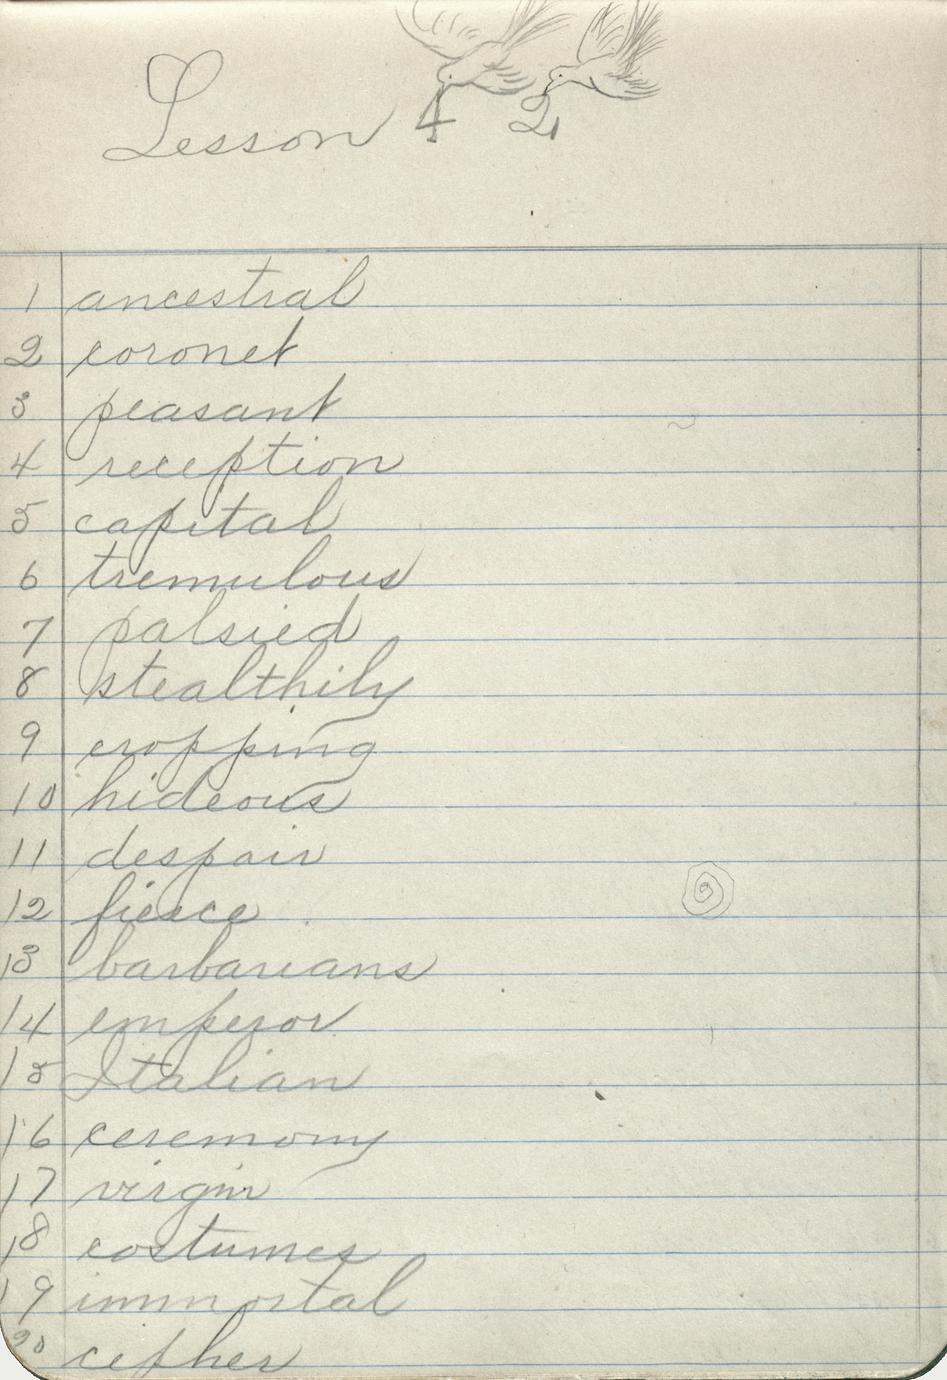 Lesson 42
1 ancestral
2 coronet
3 peasant
4 reception
5 capital
6 tremulous
7 palsied
8 stealthily
9 cropping
10 hideous
11 despair
12 fierce
13 barbarians
14 emperor
15 Italian
16 ceremony
17 virgin
18 costumes
19 immortal
20 cipher